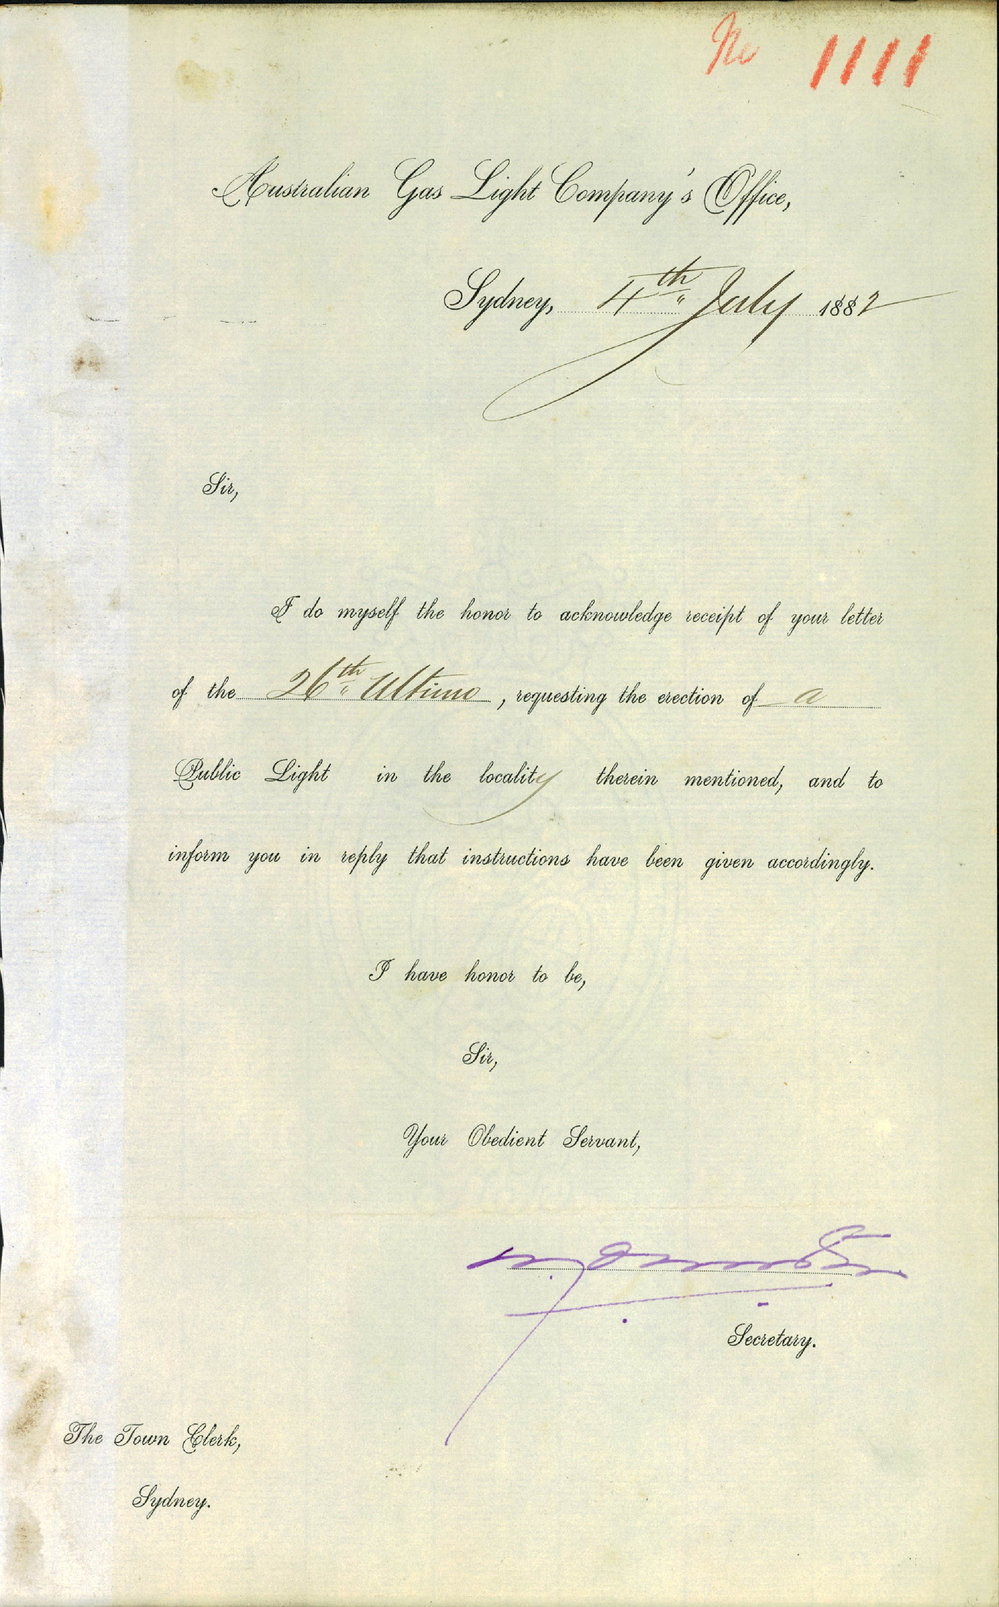 No 1111
Australian Gas Light Company's Office,
Sydney, 4th July 1882
Sir,
I do myself the honor to acknowledge receipt of your letter
of the 26th Ultimo, requesting the erection of a
Public Light in the locality therein mentioned, and to
inform you in reply that instructions have been given accordingly.
I have honor to be,
Sir,
Your Obedient Servant,
Secretary.
The Town Clerk,
Sydney.